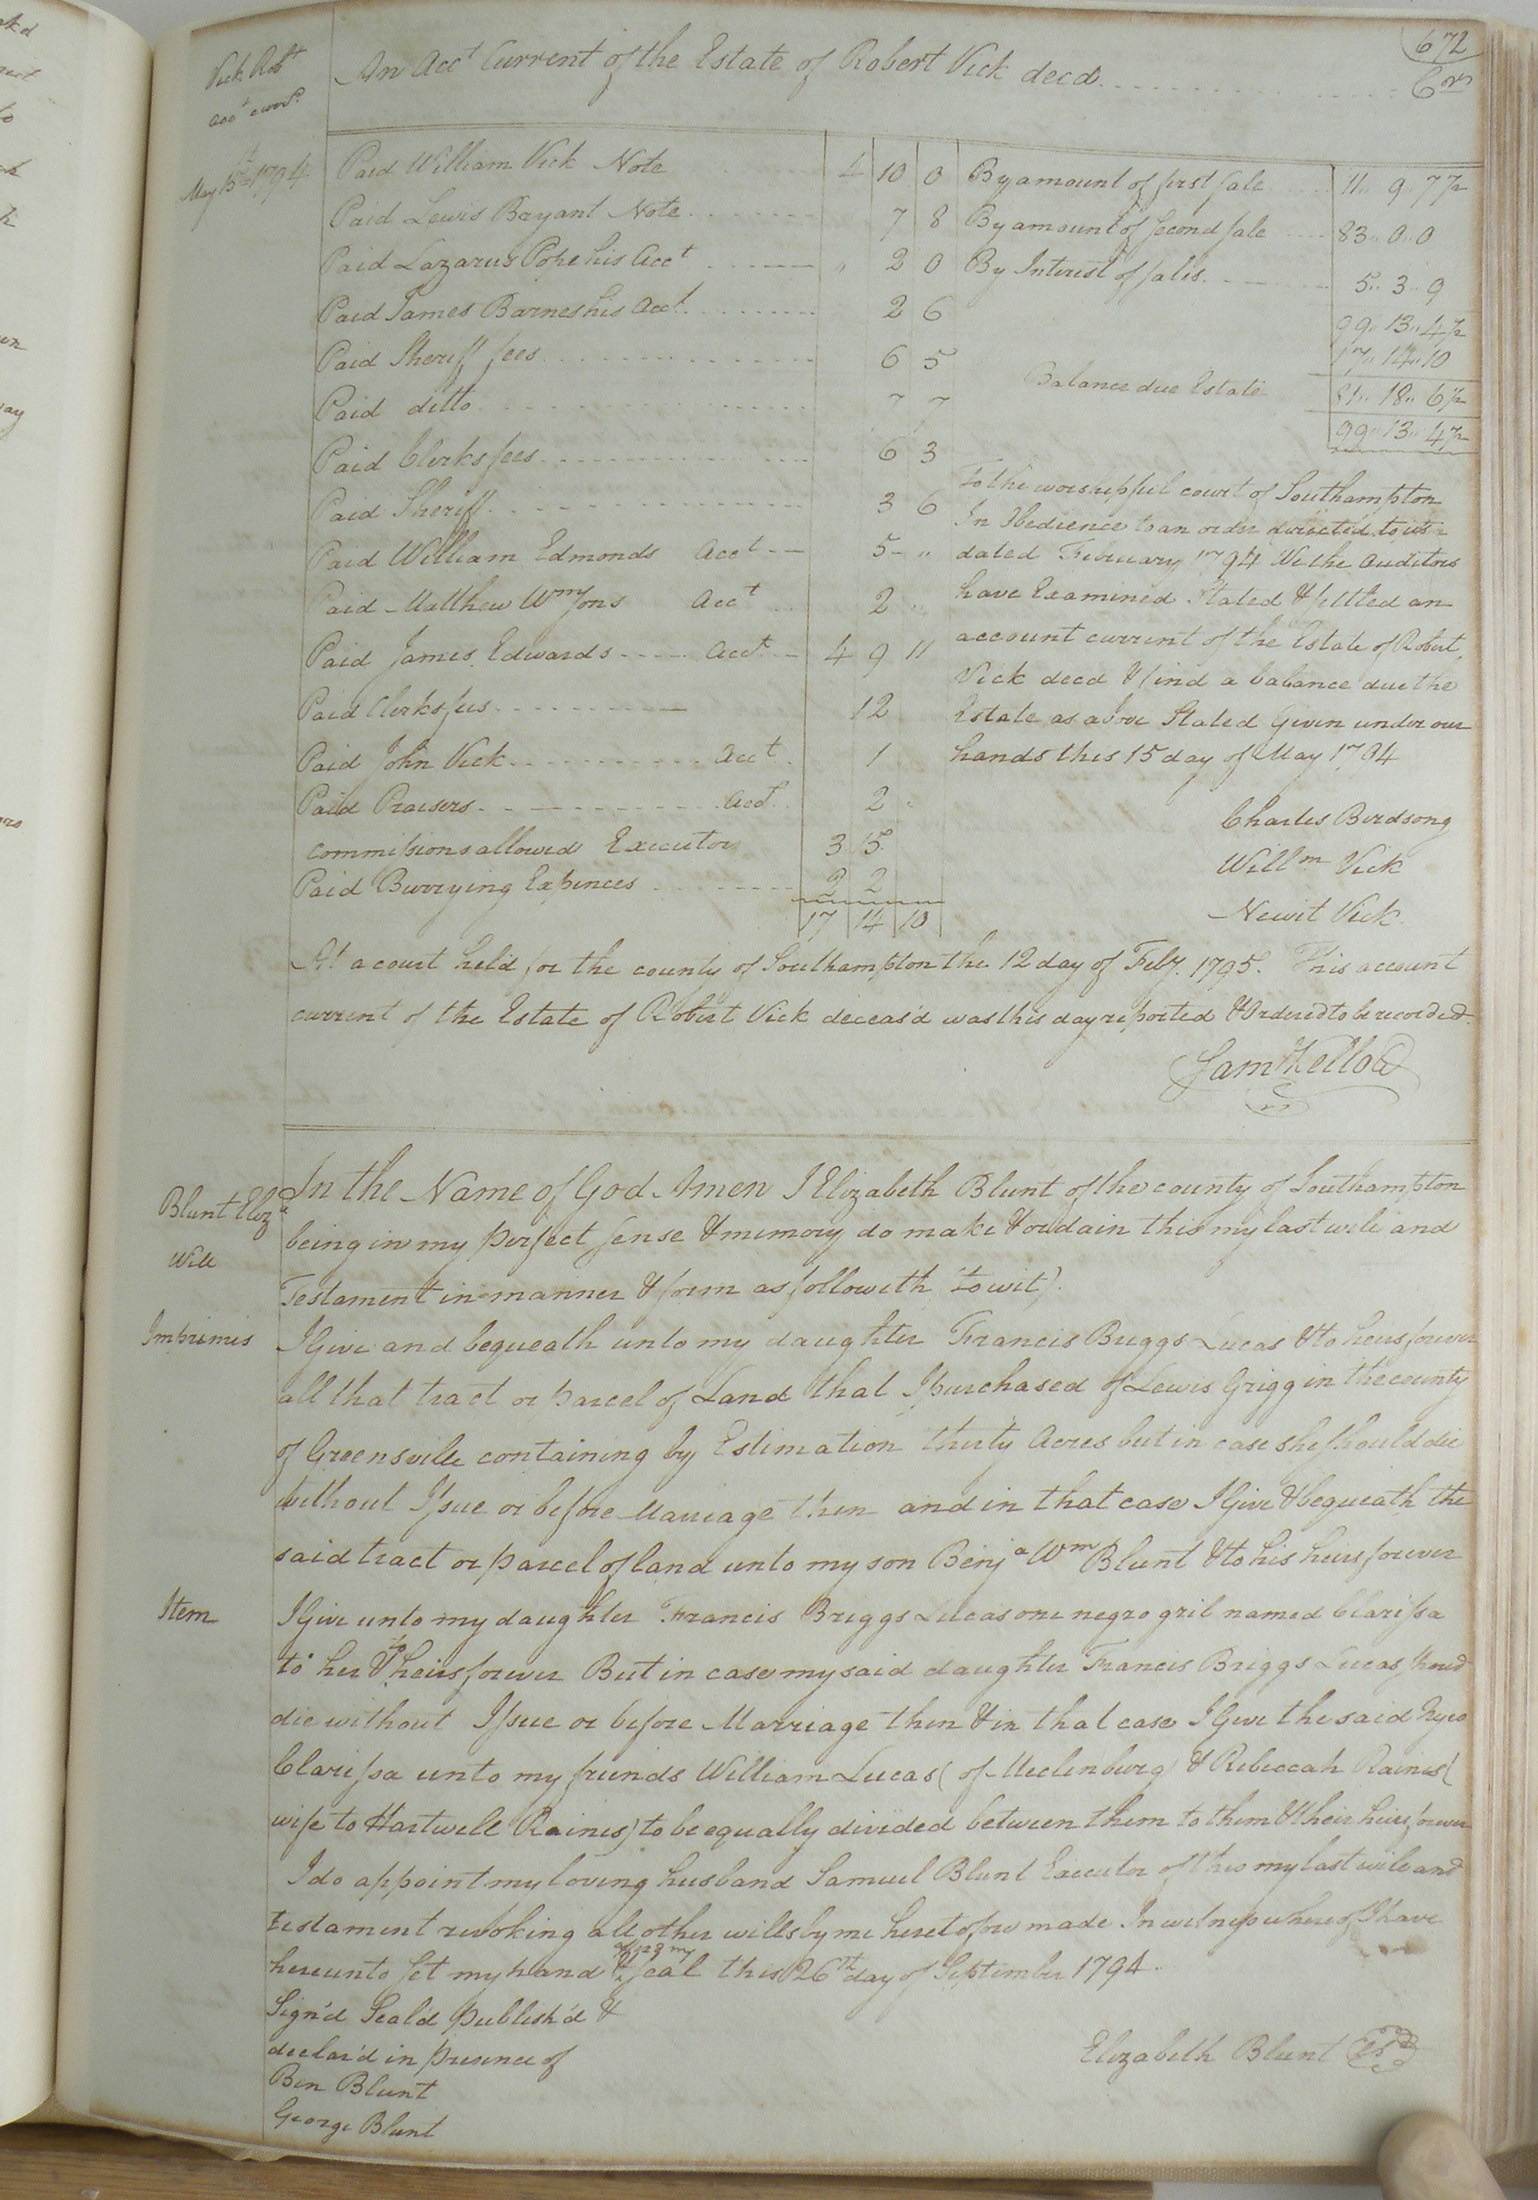 672
Vick Robt
acct currt
An Acct Current of the Estate of Robert Vick decd Crs
May 15th 1794
Paid William Vick Note 4 10 0
Paid Lewis Bryant Note 7 8
Paid Lazarus Pope his acct " 2 0
Paid James Barnes his acct 2 6
Paid Sheriff fees 6 5
Paid ditto 7 7
Paid Clerks fees 6 3
Paid Sheriff 3 6
Paid William Edmonds acct 5 "
Paid Matthew Wmsons acct 2 "
Paid James Edwards acct 4 9 11
Paid Clerks fees 12
Paid John Vick acct 1
Paid Praisers acct 2
commissions allowed Executor 3 15
Paid Burrying Expences 2 2
17 14 10
By amount of first sale 11 " 9 " 7 1/2
By amount of second sale 83 " 0 " 0
By Interest of sales 5 " 3 " 9
99 " 13 " 4 1/2
17 " 14 " 10
Balance due Estate 81 " 18 " 6 1/2
99 " 13 " 4 1/2
To the worshipful court of Southampton
In Obedience to an order directed to us
dated February 1794 We the auditors
have Examined Stated & settled an
account current of the Estate of Robert
Vick decd & find a balance due the
Estate as above Stated Given under our
hands this 15 day of May 1794
Charles Birdsong
Willm Vick
Newit Vick
At a court held for the county of Southampton the 12 day of Feby. 1795. This account
current of the Estate of Robert Vick deceas'd was this day reported & Ordered to be recorded
Sam Kello
Blunt Eliza
Will
In the Name of God Amen I Elizabeth Blunt of the county of Southampton
being in my perfect sense & memory do make & ordain this my last will and
Testament in manner & form as followeth (to wit).
Imprimis
I Give and bequeath unto my daughter Francis Briggs Lucas & to heirs forever
all that tract or parcel of Land that I purchased of Lewis Grigg in the county
of Greensville containing by Estimation thirty Acres but in case she should die
without Issue or before Marriage then and in that case I Give & bequeath the
said tract or parcel of land unto my son Benja Wm Blunt & to his heirs forever
Item
I Give unto my daughter Francis Briggs Lucas one negro gril named Clarissa
to her & to heirs forever But in case my said daughter Francis Briggs Lucas shoud
die without Issue or before Marriage then & in that case I Give the said Negro
Clarissa unto my friends William Lucas (of Meclenburg) & Rebeccah Raines (
wife to Hartwell Raines) to be equally divided between them to them & their heirs forever
I do appoint my loving husband Samuel Blunt Executor of this my last will and
testament revoking all other wills by me heretofore made In witness whereof I have
hereunto set my hand & affix'd my seal this 26th day of September 1794.
Sign'd Seald Publish'd &
declar'd in presence of
Ben Blunt
George Blunt
Elizabeth Blunt